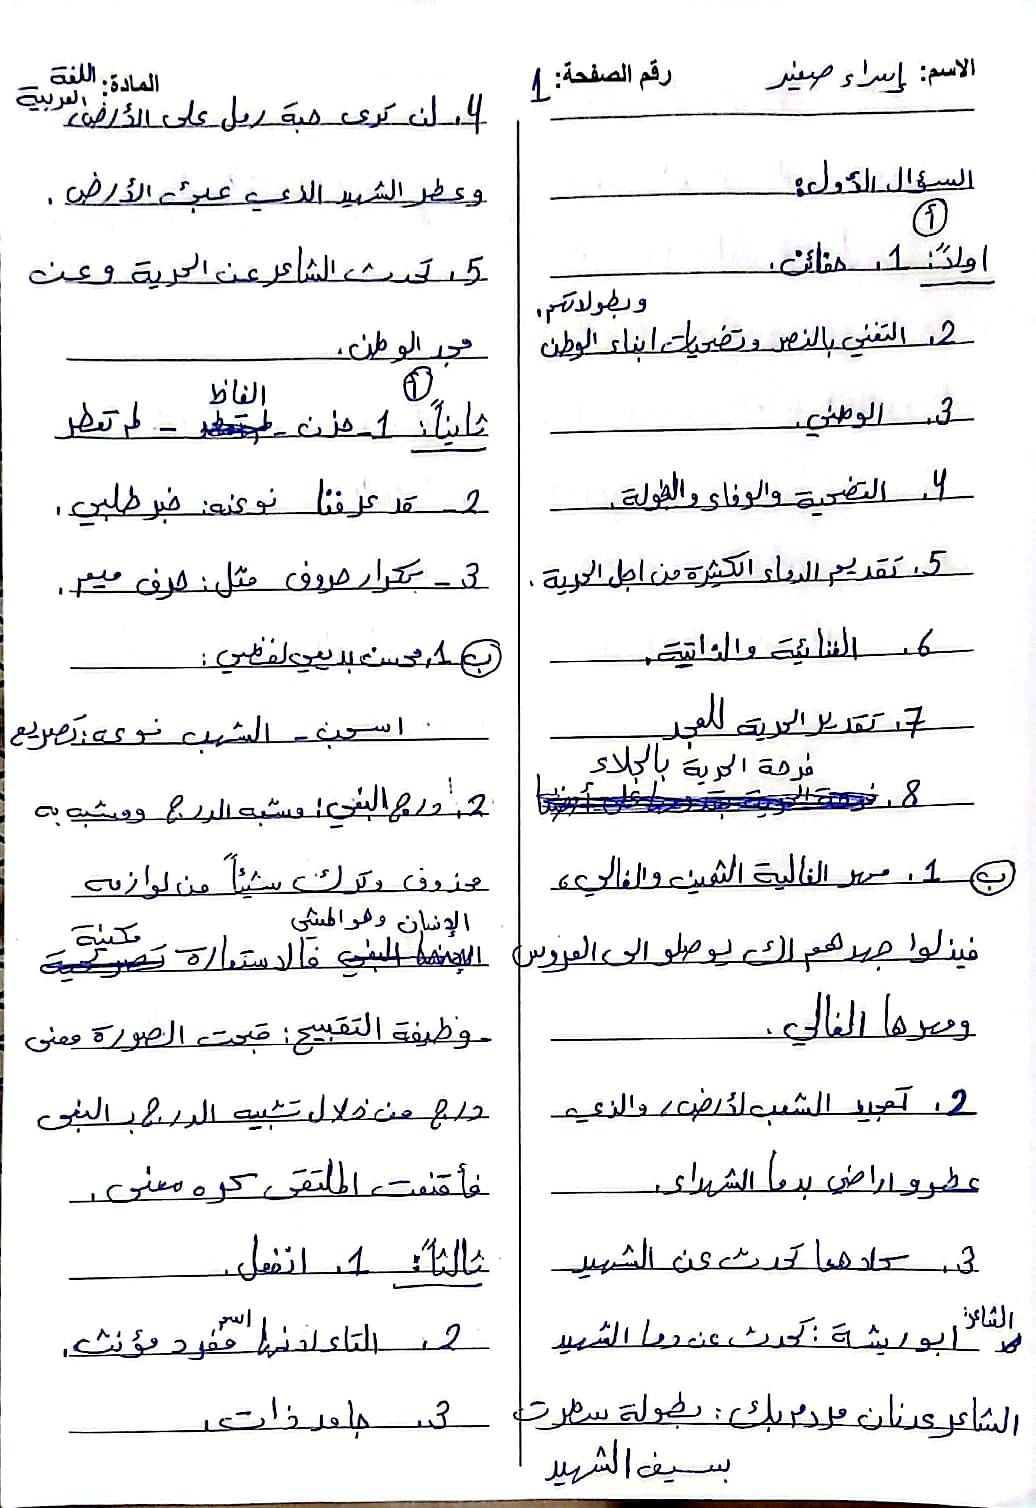 الاسم: إسراء صغير
رقم الصفحة: 1
المادة: اللغة العربية
السؤال الأول:
أ
اولاً: 1. حفائن.
2. التغني بالنصر وتضحيات ابناء الوطن وبطولاتهم.
3. الوطني.
4. التضحية والوفاء والبطولة.
5. تقديم الدماء الكثيرة من اجل الحرية.
6. الغنائية والذاتية.
7. تقدير الحرية للمجد
8. فرحة الحرية بالجلاء
ب 1. مهر الغالية الثمين والغالي،
فبذلوا جهدهم لك يوصلو الى العروس
ومهرها الغالي.
2. تمجيد الشعب لأرض، والذي
عطرو اراضي بدما الشهداء.
3. كلاهما تحدث عن الشهيد
الشاعر ابو ريشة: تحدث عن دما الشهيد
الشاعر عدنان مردم بك: بطولة سطرت
بسيف الشهيد
4. لن ترى حبة رمل على الأرض،
وعطر الشهيد الذي عبئ الأرض.
5. تحدث الشاعر عن الحرية وعن
مجد الوطن.
أ
ثانياً: 1- حزن - الفاظ - لم تعطر
2- قد عرفنا نوعه: خبر طلبي.
3- تكرار حروف مثل: حرف ميم.
ب 1. محسن بديعي لفظي:
اسحبي - الشهب نوعه: تصريع
2. أ درج البغي: مشبه الدرج ومشبه به
محذوف وترك شيئاً من لوازمه
الإنسان وهو المشي فالاستعارة مكنية
- وظيفة التقبيح: قبحت الصورة معنى
درج من خلال تشبيه الدرج بـ البغي
فأقنعت الملتقى كره معنى.
ثالثاً: 1. انفعل.
2. التاء لانها اسم مفرد مؤنث.
3. جامد ذات.